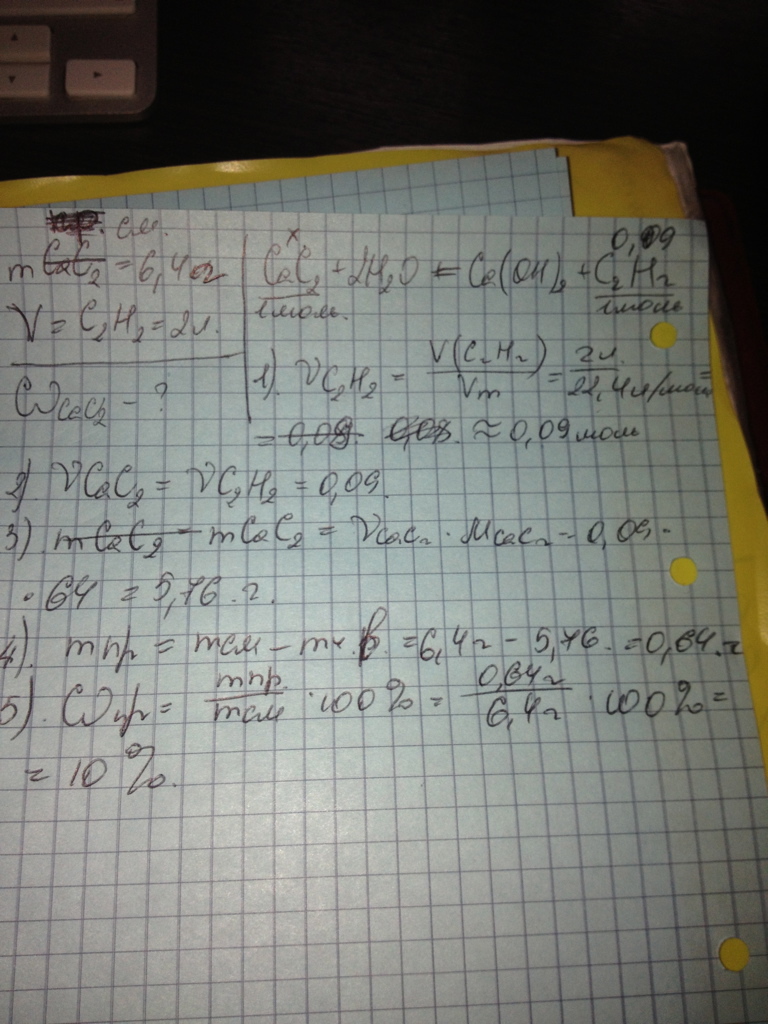 см.
m CaC₂ = 6,4 г
V = C₂H₂ = 2 л.
ω CaC₂ - ?
x 0,09
CaC₂ + 2H₂O = Ca(OH)₂ + C₂H₂
1 моль. 1 моль
1) ν C₂H₂ = V(C₂H₂) / Vm = 2 л. / 22,4 л/моль =
= 0,09 0,08 ≈ 0,09 моль
2) ν CaC₂ = ν C₂H₂ = 0,09.
3) m CaC₂ - m CaC₂ = ν CaC₂ · M CaC₂ - 0,09 ·
· 64 = 5,76 г.
4). m пр = m см - m ч.в. = 6,4 г - 5,76. = 0,64. г
5). ω пр = m пр / m см · 100% = 0,64 г / 6,4 г · 100% =
= 10%.